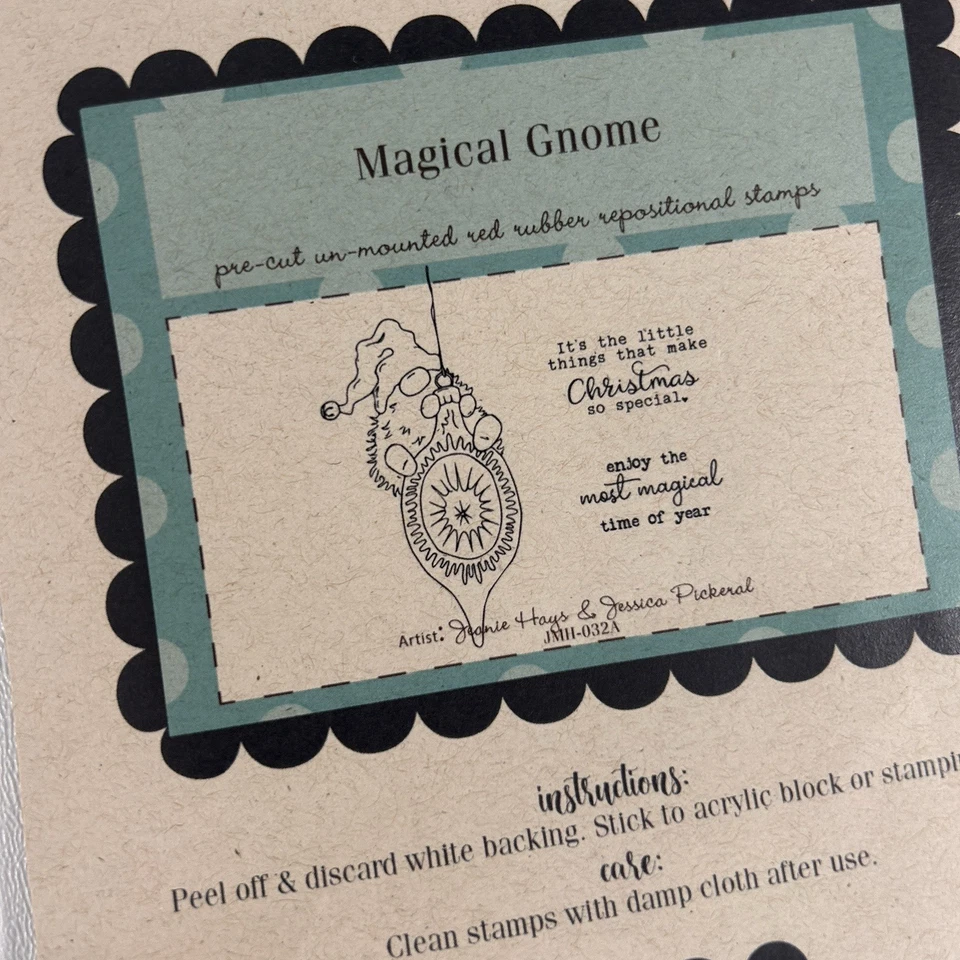 Magical Gnome
pre-cut un-mounted red rubber repositional stamps
It's the little
things that make
Christmas
so special.
enjoy the
most magical
time of year
Artist: Jeanie Hays & Jessica Pickeral
JMH-032A
instructions:
Peel off & discard white backing. Stick to acrylic block or
care:
Clean stamps with damp cloth after use.